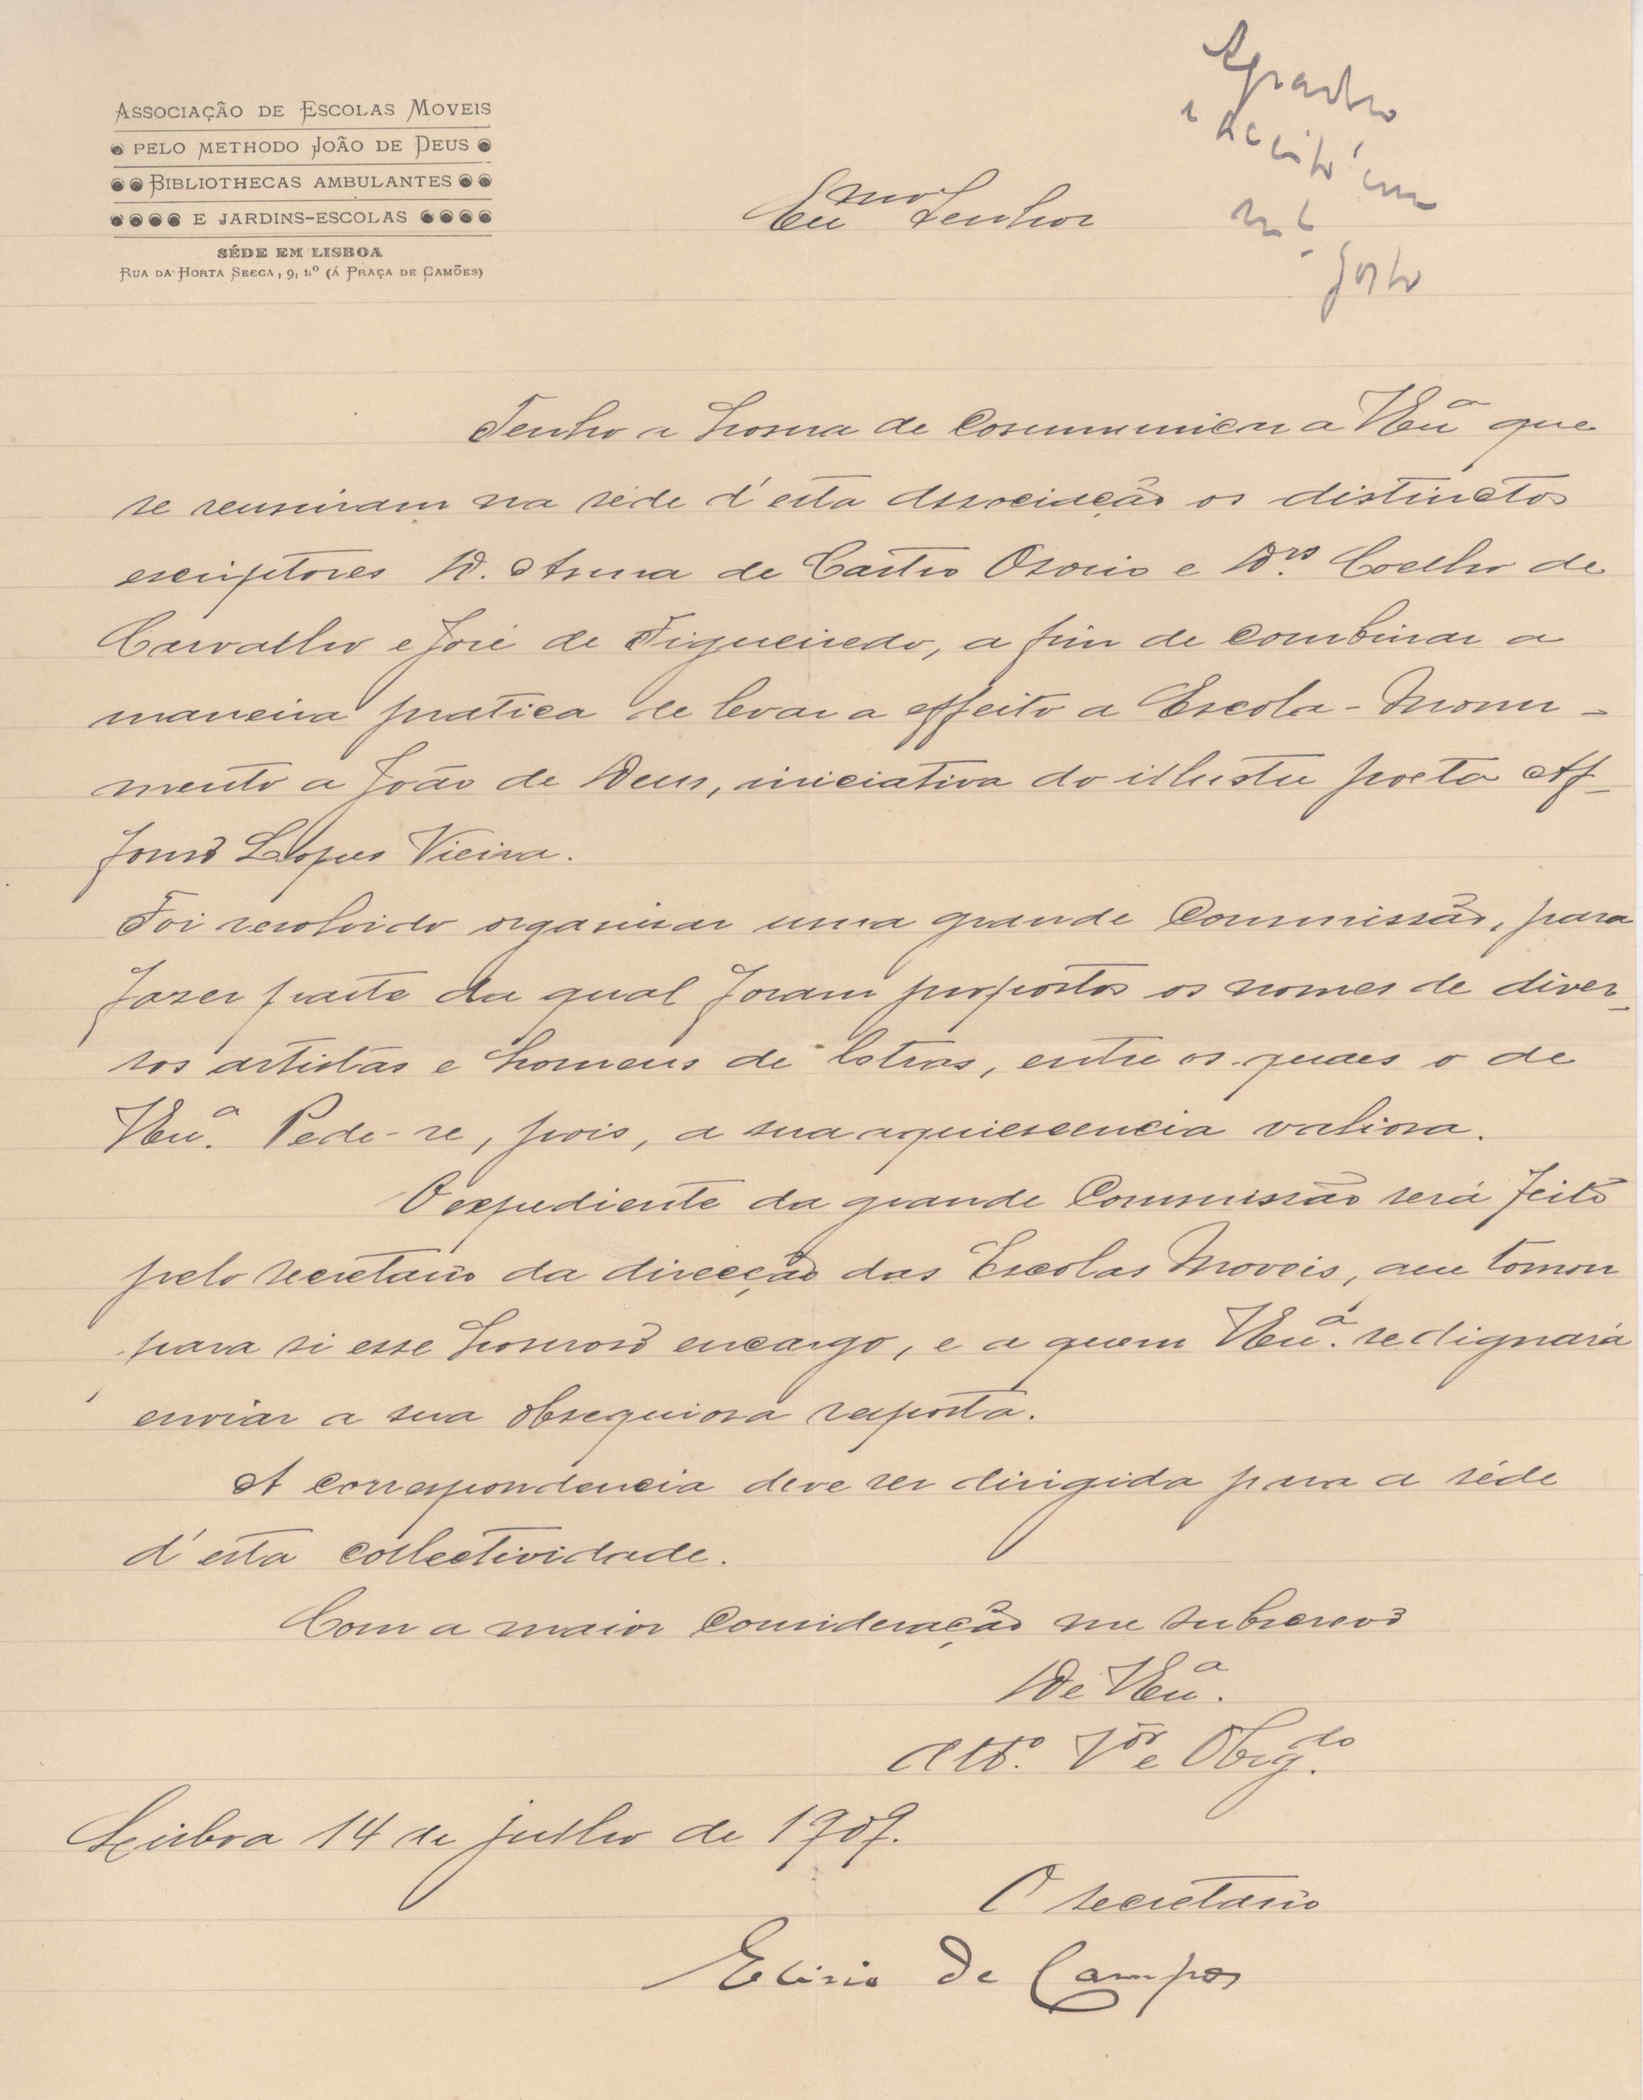 ASSOCIAÇÃO DE ESCOLAS MOVEIS
PELO METHODO JOÃO DE DEUS
BIBLIOTHECAS AMBULANTES
E JARDINS-ESCOLAS
SÉDE EM LISBOA
RUA DA HORTA SECCA, 9, 1.º (Á PRAÇA DE CAMÕES)
Agradeço
e acceito com
mt.º
gosto
Exmo Senhor
Tenho a honra de communicar a V Exª que
se reuniram na séde d'esta Associação os distinctos
escriptores D. Anna de Castro Osorio e Drs. Coelho de
Carvalho e José de Figueiredo, a fim de combinar a
maneira pratica de levar a effeito a Escola-Monu-
mento a João de Deus, iniciativa do illustre poeta Af-
fonso Lopes Vieira.
Foi resolvido organisar uma grande Commissão, para
fazer parte da qual foram propostos os nomes de diver-
sos artistas e homens de letras, entre os quaes o de
V Exª. Pede-se, pois, a sua aquiescencia valiosa.
O expediente da grande Commissão será feito
pelo secretario da direcção das Escolas Moveis, que tomou
para si esse honroso encargo, e a quem V Exª. se dignará
enviar a sua obsequiosa resposta.
A correspondencia deve ser dirigida para a séde
d'esta collectividade.
Com a maior consideração me subscrevo
De V Exª.
Attº. Vor e Obrgdo.
Lisboa 14 de julho de 1909.
O secretario
Elisio de Campos